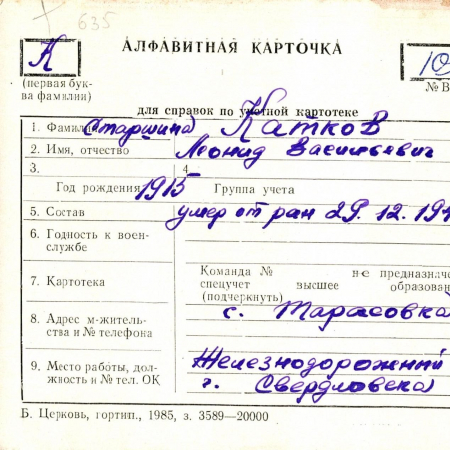 635
АЛФАВИТНАЯ КАРТОЧКА
К
10
(первая бук-
ва фамилии)
№ В
для справок по учетной картотеке
1. Фамилия Старшина Катков
2. Имя, отчество Леонид Васильевич
3. 4.
Год рождения 1915 Группа учета
5. Состав умер от ран 29.12.194
6. Годность к воен-
службе
7. Картотека
Команда № не предназначе
спецучет высшее образован
(подчеркнуть)
8. Адрес м-житель-
ства и № телефона
с. Тарасовка
9. Место работы, дол-
жность и № тел. ОК
Железнодорожний
г. Свердловска
Б. Церковь, гортип., 1985, з. 3589—20000